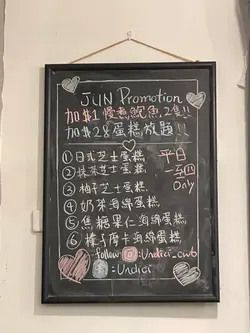 JUN Promotion
加$1 慢煮鮑魚2隻!!
加$28蛋糕放題!!
① 日式芝士蛋糕
② 抹茶芝士蛋糕
③ 柚子芝士蛋糕
④ 奶茶海綿蛋糕
⑤ 焦糖果仁海綿蛋糕
⑥ 榛子摩卡海綿蛋糕
平日
一至四
Only
follow :Undici_cwb
:Undici